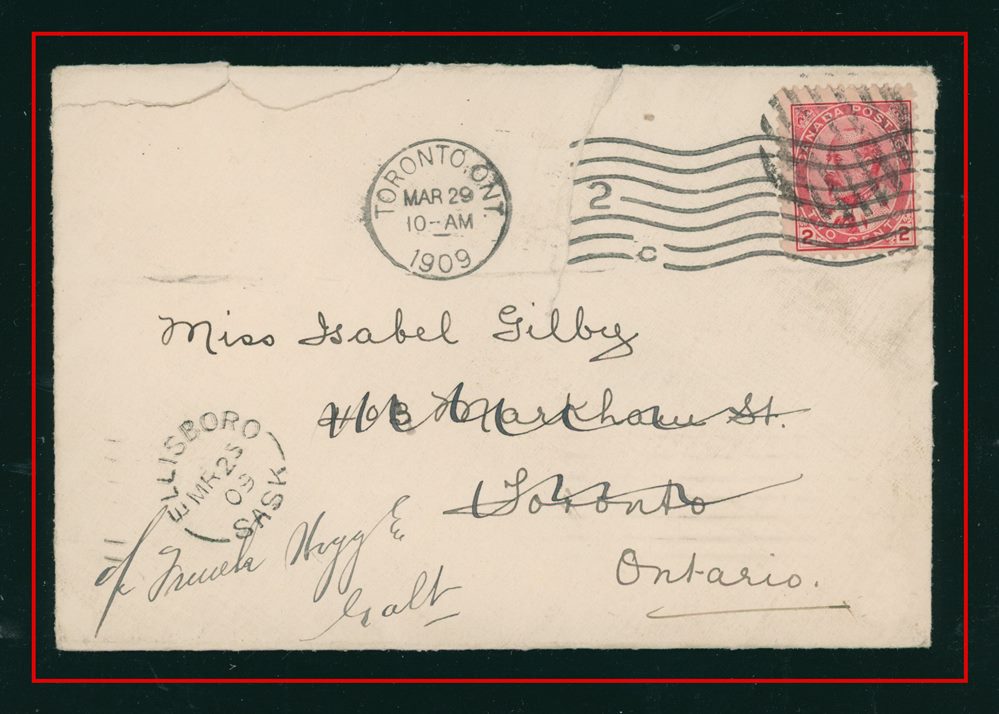 TORONTO, ONT.
MAR 29
10-AM
1909
2
C
CANADA POSTAGE
2 TWO CENTS 2
Miss Isabel Gilby
408 Markham St.
Toronto
Ontario.
ELLISBORO
MR 25
09
SASK
Hogg
Galt